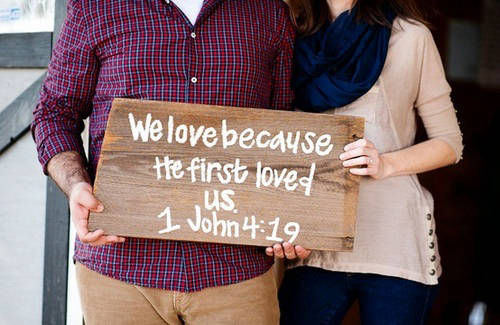 We love because
He first loved
us.
1 John 4:19